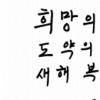 희망의
도약의
새해 복